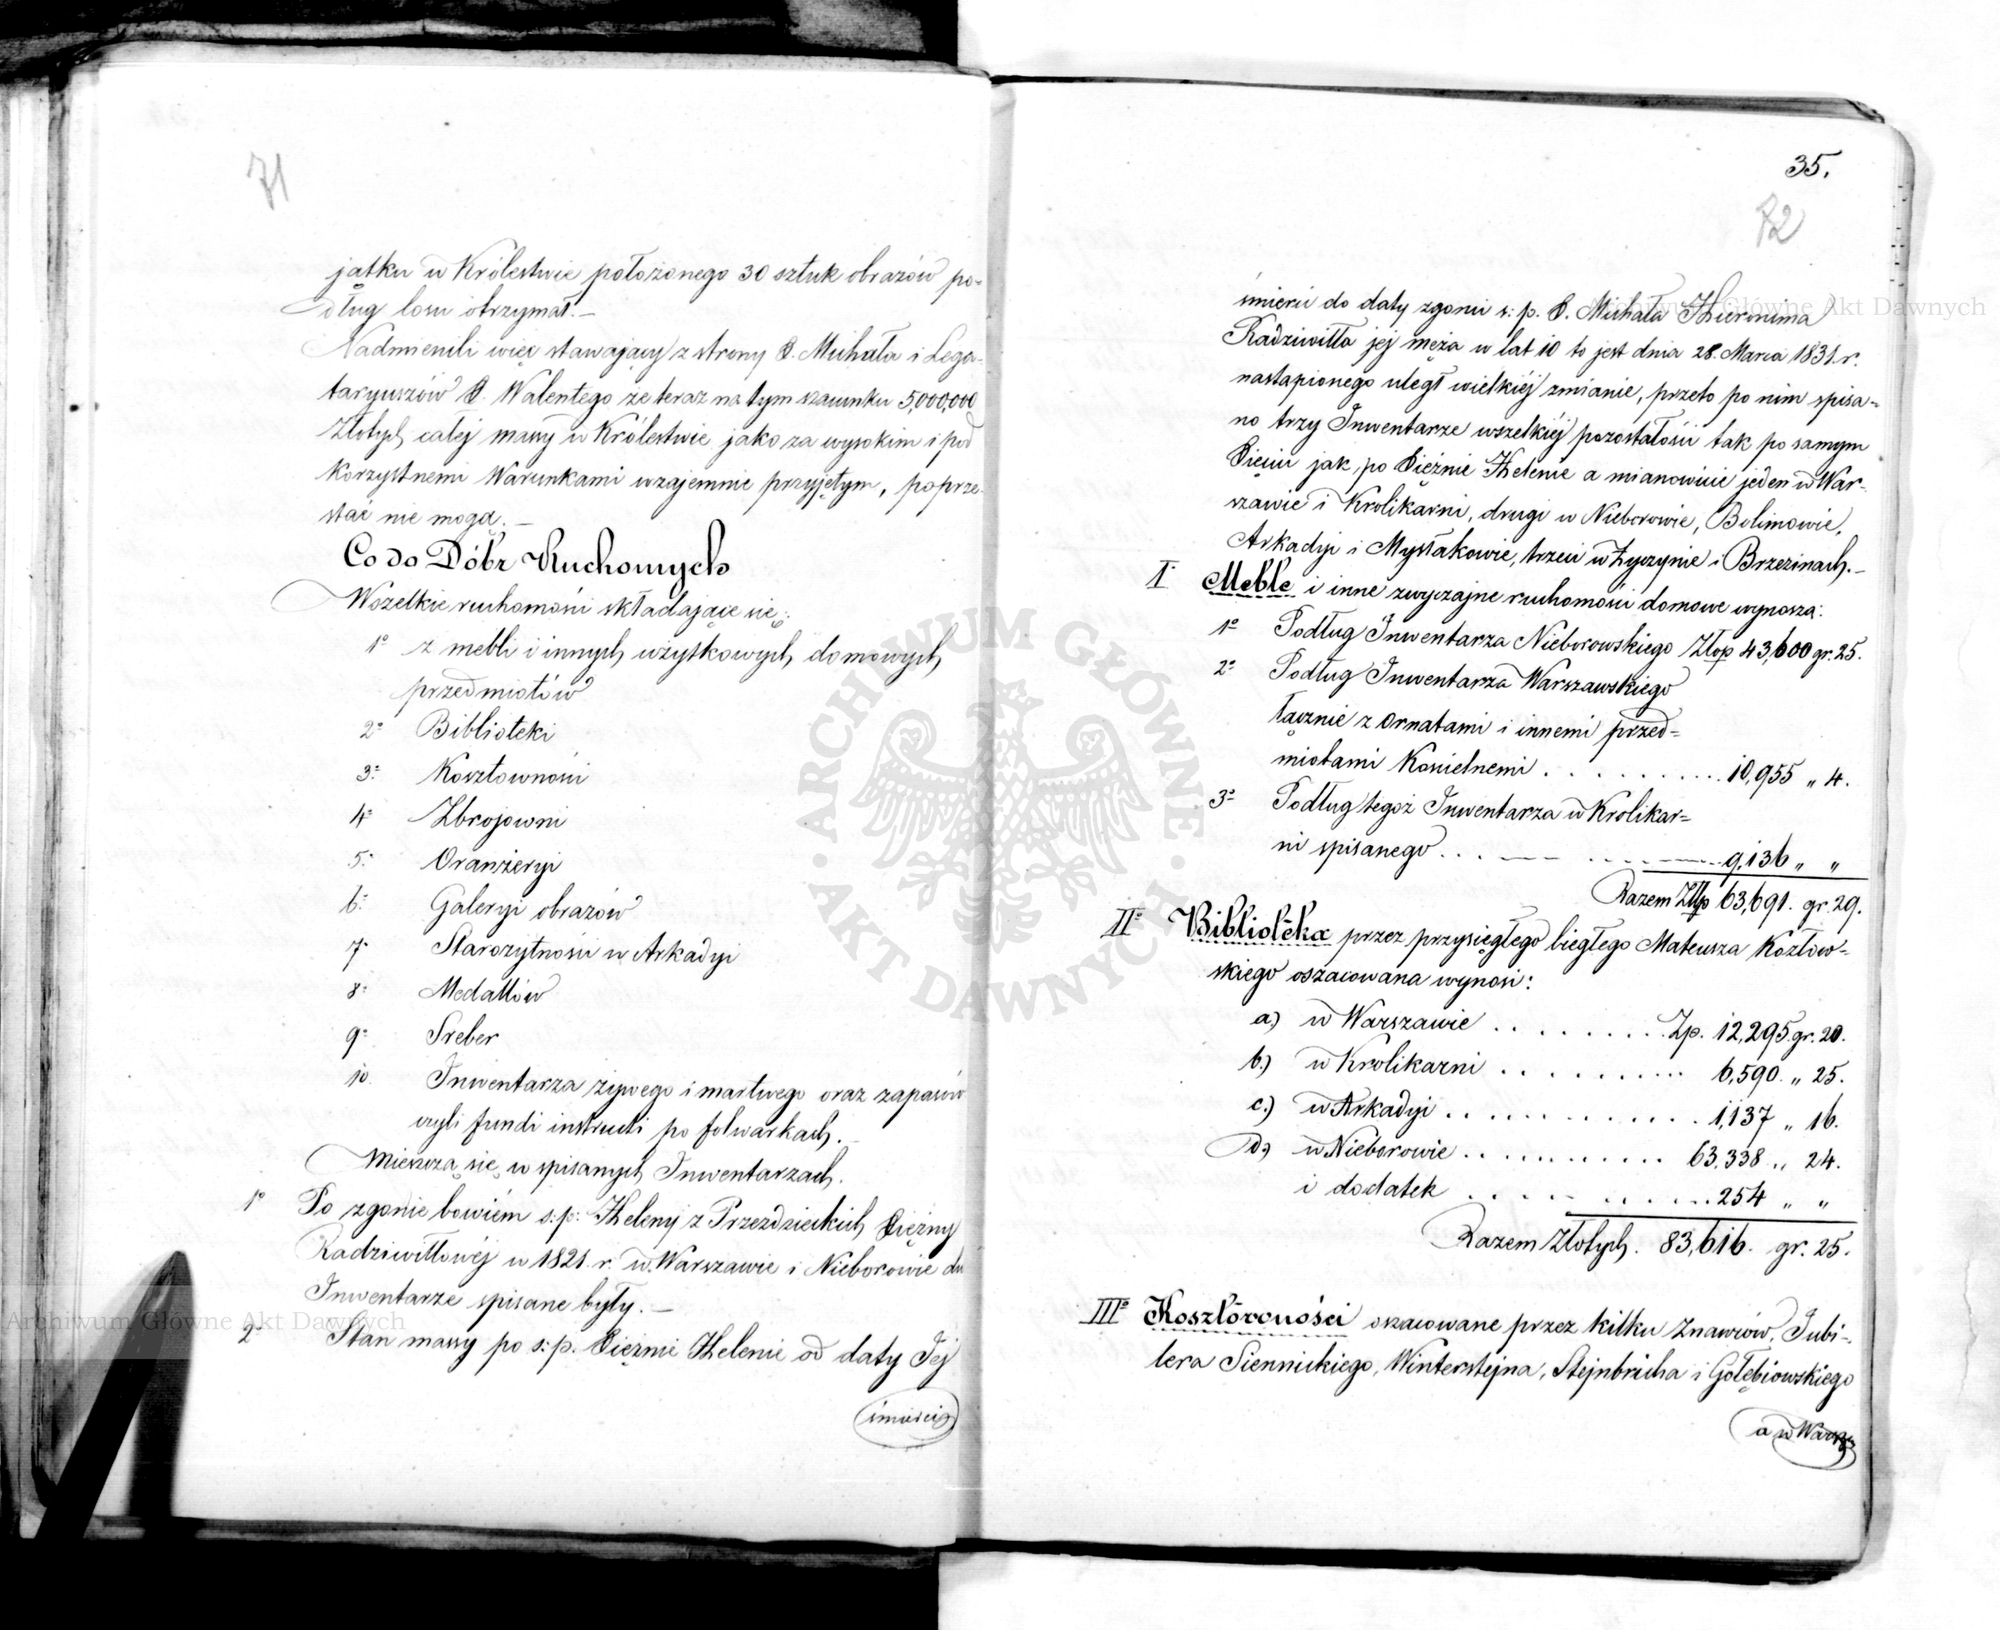 71
jątku w Królestwie położonego 30 sztuk obrazów po-
dług losu otrzymał.—
Nadmienili więc stawający z strony X. Michała i Lega-
taryuszów X. Walentego że teraz na tym szacunku 5,000,000
Złotych całej massy w Królestwie jako za wysokim i pod
korzystnemi Warunkami wzajemnie przyjętym, poprze-
stać nie mogą.—
Co do Dóbr Ruchomych
Wszelkie ruchomości składające się:
1º z mebli i innych użytkowych domowych
przedmiotów
2º Biblioteki
3º Kosztowności
4º Zbrojowni
5º Oranżeryi
6º Galeryi obrazów
7º Starożytności w Arkadyi
8º Medallów
9º Sreber
10. Inwentarza żywego i martwego oraz zapasów
czyli fundi instructi po folwarkach.—
Mieszczą się w spisanych Inwentarzach.
1º Po zgonie bowiém s:p: Heleny z Przezdzieckich Xiężny
Radziwiłłowéj w 1821 r. w Warszawie i Nieborowie dwa
Inwentarze spisane były.—
2º Stan massy po s:p. Xiężnie Helenie od daty Jej
śmierci
35.
72
śmierci do daty zgonu s:p. X. Michała Hieronima
Radziwiłła jej męża w lat 10 to jest dnia 28. Marca 1831. r.
nastąpionego uległ wielkiéj zmianie, przeto po nim spisa-
no trzy Inwentarze wszelkiéj pozostałości tak po samym
Xięciu jak po Xiężnie Helenie a mianowicie jeden w War-
szawie i Krolikarni, drugi w Nieborowie, Bolimowie,
Arkadyi i Mysłakowie, trzeci w Życzynie i Brzezinach.—
Iº Meble i inne zwyczajne ruchomości domowe wynoszą:
1º Podług Inwentarza Nieborowskiego Złop 43,600 gr. 25.
2º Podług Inwentarza Warszawskiego
łącznie z Ornatami i innemi przed-
miotami Kościelnemi . . . . . . . . . . 10,955 „ 4.
3º Podług tegoż Inwentarza w Krolikar-
ni spisanego . . . . . . . . 9,136 „ „
Razem Złp 63,691. gr. 29.
IIº Biblioteka przez przysięgłego biegłego Mateusza Kozłow-
skiego oszacowana wynosi:
a.) w Warszawie . . . . . . . . Zp. 12,295 gr. 20.
b.) w Krolikarni . . . . . . . . . . 6,590. „ 25.
c.) w Arkadyi . . . . . . . . . . . . 1,137 „ 16.
d.) w Nieborowie . . . . . . . . . . . 63,338 „ 24.
i dodatek . . . . . . . . . . 254 „ „
Razem Złotych. 83,616. gr. 25.
IIIº Kosztowności oszacowane przez kilku Znawców, Jubi-
lera Siennickiego, Winterstejna, Stejnbricha i Gołębiowskiego
a w Warsz
Archiwum Główne Akt Dawnych
Archiwum Główne Akt Dawnych
ARCHIWUM GŁÓWNE · AKT DAWNYCH ·